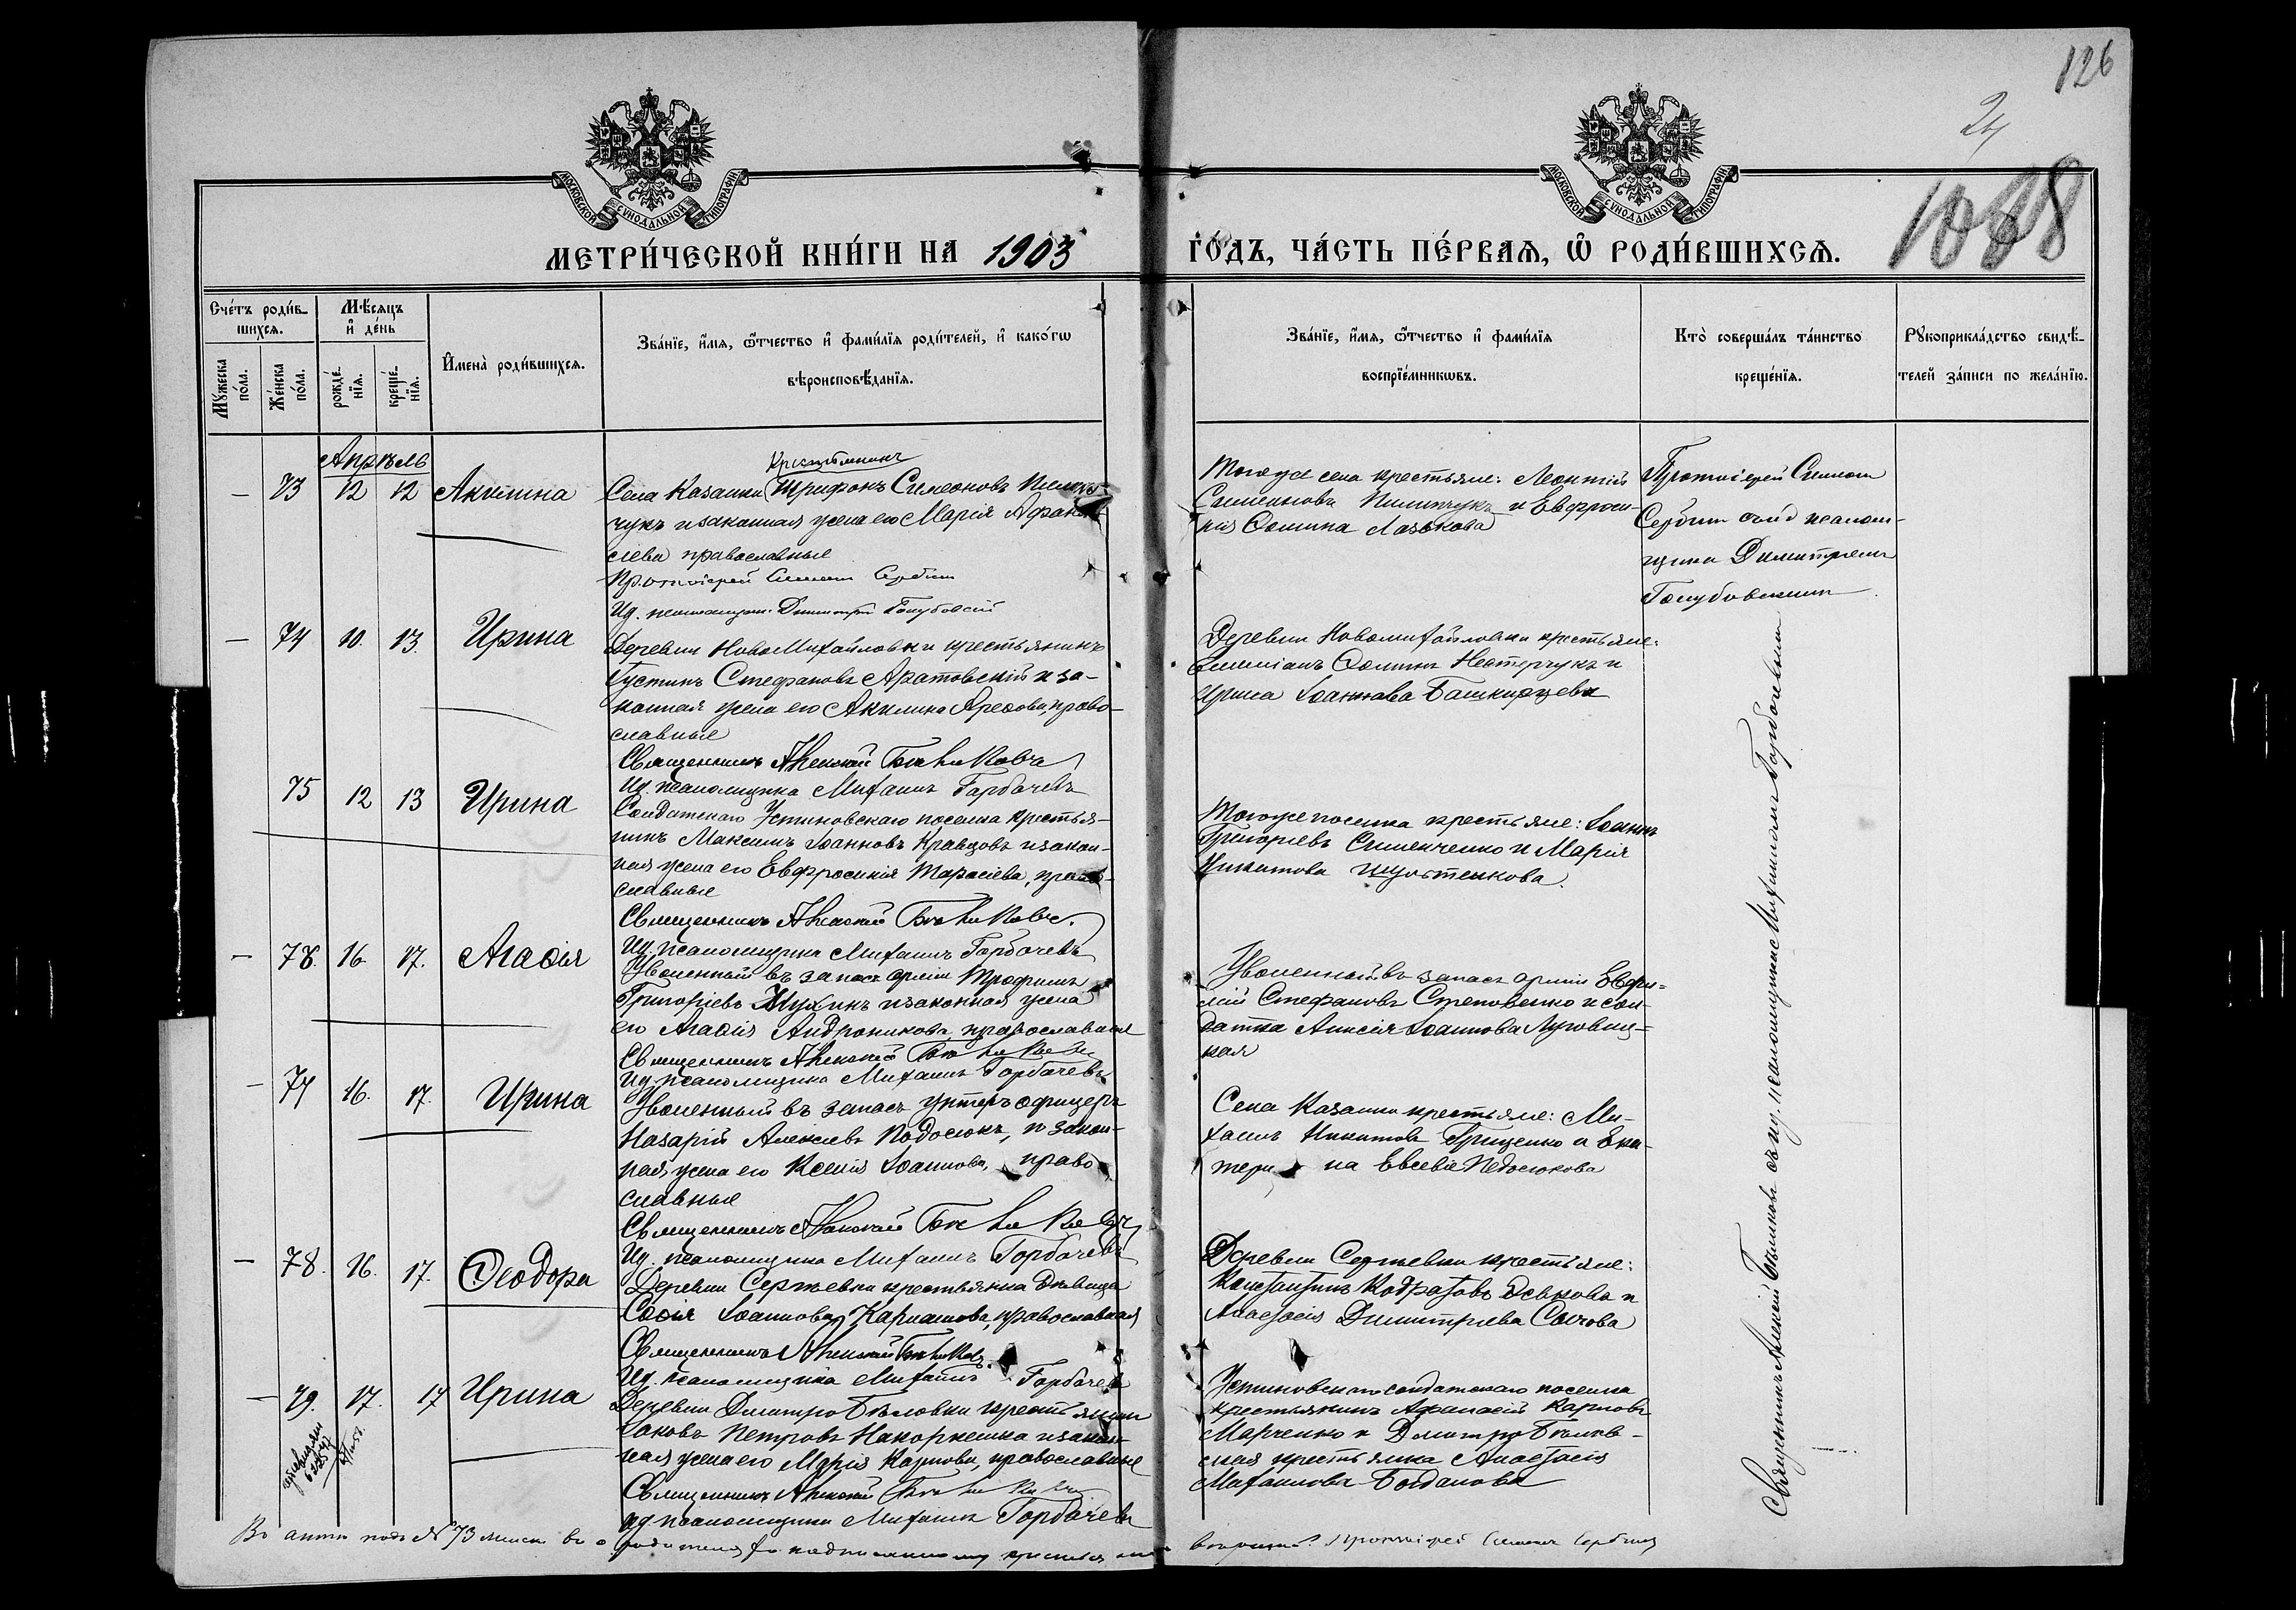 126
24
1088
МОСКОВСКОЙ СУНОДАЛЬНОЙ ТИПОГРАФІИ
МОСКОВСКОЙ СУНОДАЛЬНОЙ ТИПОГРАФІИ
МЕТРИ́ЧЕСКОЙ КНИ́ГИ НА 1903 ГО́ДЪ, ЧА́СТЬ ПЕ́РВАЯ, Ѡ РОДИ́ВШИХСЯ.
Сче́тъ роди́в-
шихся.
Мѣсяцъ
и́ де́нь
Мꙋ́жеска
по́ла.
Же́нска
по́ла.
рожде́-
нїя.
креще́-
нїя.
И҆мена̀ роди́вшихся.
Зва́нїе, и҆́мя, ѻ҆́тчество и҆ фами́лїя роди́телей, и҆ како́гѡ
вѣроисповѣ́данїя.
Зва́нїе, и҆́мя, ѻ҆́тчество и҆ фами́лїя
воспрїе́мникѡвъ.
Кто̀ соверша́лъ та́инство
креще́нїя.
Рꙋкоприкла́дство свидѣ́-
телей за́писи по жела́нїю.
Апрѣль
крестьянинъ
73 12 12 Акилина
Села Казанки Трифонъ Симеоновъ
чукъ и законная жена его Марія Афана-
сіева православные
Протоіерей Симеон Сербин
Ид. псаломщик Димитрій Голубовскій
Тогоже села крестьяне: Леонтій
Симеоновъ Пилипчукъ и Евфроси-
нія Ѳомина Лазькова
Протоіерей Симеон
Сербин съ и д псалом-
щика Димитріем
Голубовским
74 10. 13. Ирина
Деревни НовоМихайловки крестьянинъ
Густинъ Стефановъ Аратовскій и за-
конная жена его Акилина Арефова, право-
славные
Священникъ Алексій
Ид. псаломщика Михаилъ Горбачевъ
Деревни Новомихайловки крестьяне:
Ѳоминъ Нестерчукъ и
Ирина Іоаннова Башкирцева
75 12 13 Ирина
Солдатскаго Устиновскаго поселка крестья-
нинъ Максимъ Іоанновъ Кравцовъ и закон-
ная жена его Евфросинія Тарасіева, право-
славные
Священникъ Алексій
Ид. псаломщика Михаилъ Горбачевъ
Тогоже поселка крестьяне: Іоаннъ
Григоріевъ Сименченко и Марія
Никитова Шустенкова.
78. 16. 17. Агаѳія
Уволенный въ запасъ арміи Трофимъ
Григоріевъ и законная жена
его Агаѳія Андроникова православные
Священникъ Алексій
Ид. псаломщика Михаилъ Горбачевъ
Уволенный въ запасъ арміи Евфи-
мій Стефановъ Степовенко и сол-
датка Анисія Іоаннова Луговиц-
кая
77 16. 17. Ирина
Уволенный въ запасъ унтеръ офицеръ
Назарій Алексіевъ Подосюкъ, и закон-
ная жена его Ксенія Іоаннова, право-
славные
Священникъ Алексій
Ид. псаломщика Михаилъ Горбачевъ
Села Казанки крестьяне: Ми-
хаилъ Никитовъ Грищенко и Ека-
терина Евсевіева Подосюкова
78. 16. 17. Ѳеодора
Деревни Сергіевки крестьянка дѣвица
Софія Іоаннова Карпашова, православная
Священникъ Алексій
Ид. псаломщика Михаилъ Горбачев
Деревни Сергіевки крестьяне:
Константинъ Кодратовъ Деькова и
Анастасія Димитріева Сычова
79. 17. 17 Ирина
Деревни Дмитро Бѣловки крестьянин
Іаковъ Петровъ Накорнешка и закон-
ная жена его Марія Карпова, православные
Священникъ Алексій
ид псаломщика Михаилъ Горбачевъ
Устиновскаго солдатскаго поселка
крестьянинъ Афанасій Карповъ
Марченко и Дмитро Бѣлов-
ская крестьянка Анастасія
Михаилова Богданова
Священникъ Алексій съ ид. псаломщика Михаиломъ Горбачевымъ
Въ актѣ подъ № 73 надписанному крестьянинъ вѣрить. Протоіерей Симеонъ Сербинъ